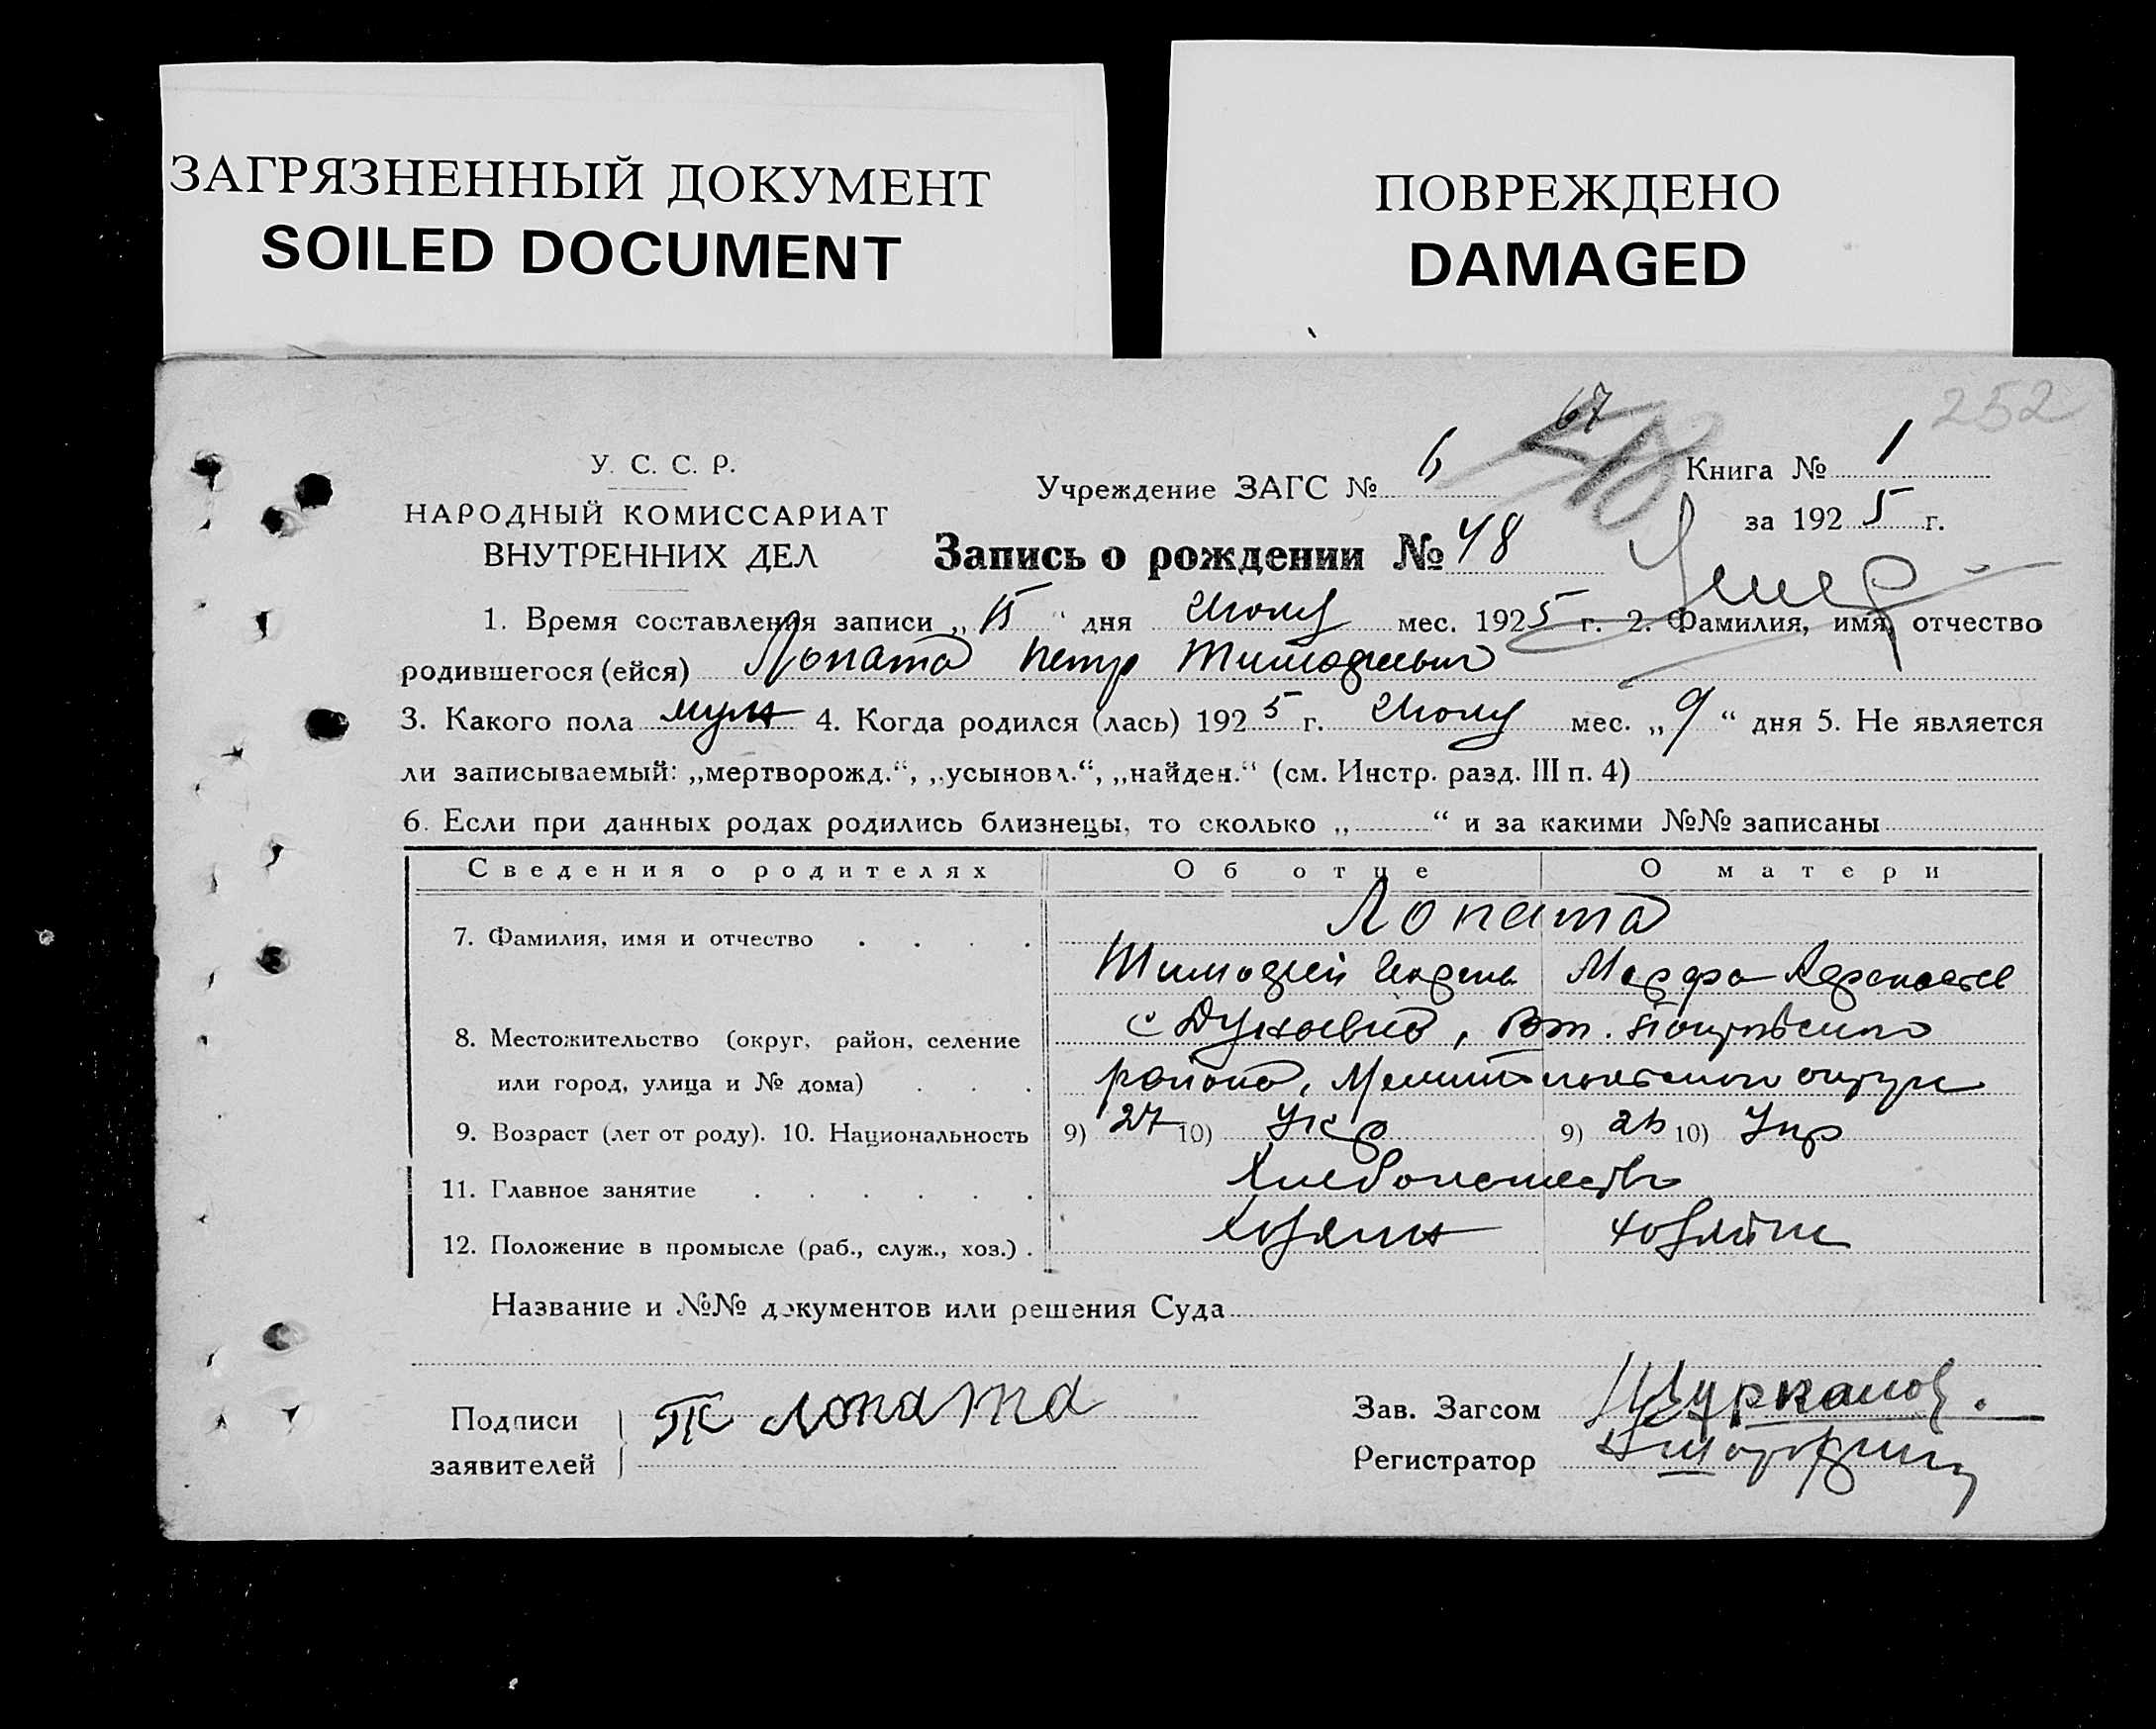 ЗАГРЯЗНЕННЫЙ ДОКУМЕНТ
SOILED DOCUMENT
ПОВРЕЖДЕНО
DAMAGED
252
67
У. С. С. Р.
НАРОДНЫЙ КОМИССАРИАТ
ВНУТРЕННИХ ДЕЛ
Учреждение ЗАГС № 6
Книга № 1
за 1925 г.
Запись о рождении № 48
Умер
1. Время составления записи „15“ дня Июля мес. 1925 г. 2. Фамилия, имя, отчество
родившегося (ейся) Лопата Петр Тимофеевич
3. Какого пола муж 4. Когда родился (лась) 1925 г. Июля мес. „9“ дня 5. Не является
ли записываемый: „мертворожд.“, „усыновл.“, „найден.“ (см. Инстр. разд. III п. 4)
6. Если при данных родах родились близнецы, то сколько „ “ и за какими №№ записаны
Сведения о родителях Об отце О матери
7. Фамилия, имя и отчество Лопата
Тимофей Марфа
8. Местожительство (округ, район, селение с , Вт. Покровского
или город, улица и № дома) района, Мелитопольского округа
9. Возраст (лет от роду). 10. Национальность 9) 27 10) Укр 9) 26 10) Укр
11. Главное занятие Хлебопашество
12. Положение в промысле (раб., служ., хоз.) Хозяин хозяйка
Название и №№ документов или решения Суда
Подписи
заявителей
Лопата
Зав. Загсом
Регистратор